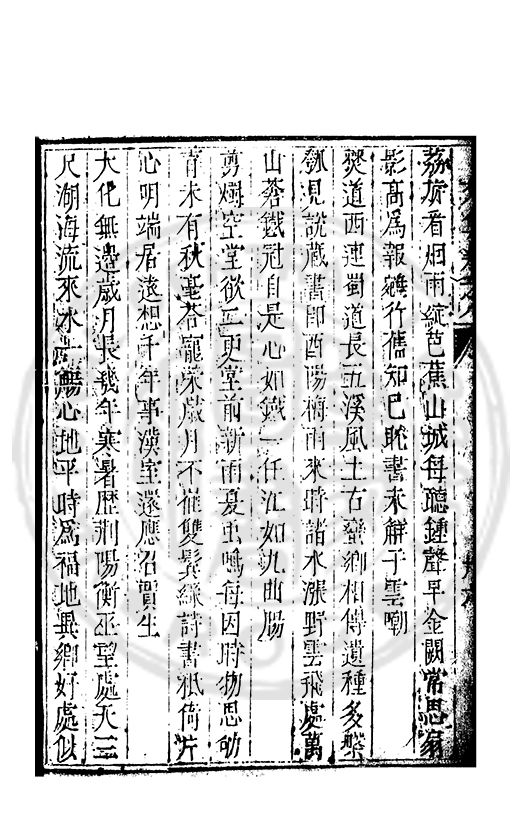 荔旂看烟雨綻芭蕉山城每聽鍾聲早金闕常思扇
影高爲報鵷行舊知己耽書未解子雲嘲
僰道西連蜀道長五溪風土右蠻鄉相傳遺種多槃
瓠見說藏書卽酉陽梅雨來時諸水漲野雲飛處萬
山蒼鐵冠自是心如鐵一任江如九曲腸
剪燭空堂欲二更堂前新雨夏虫鳴每因時物思劬
育未有秋毫荅寵榮歲月不摧雙鬓綠詩書祇倚片
心明端居遠想千年事漢室還應召賈生
大化無邊歲月長幾年寒暑歷荆陽衡巫望處天三
尺湖海流來水一觴心地平時爲福地異鄉好處似